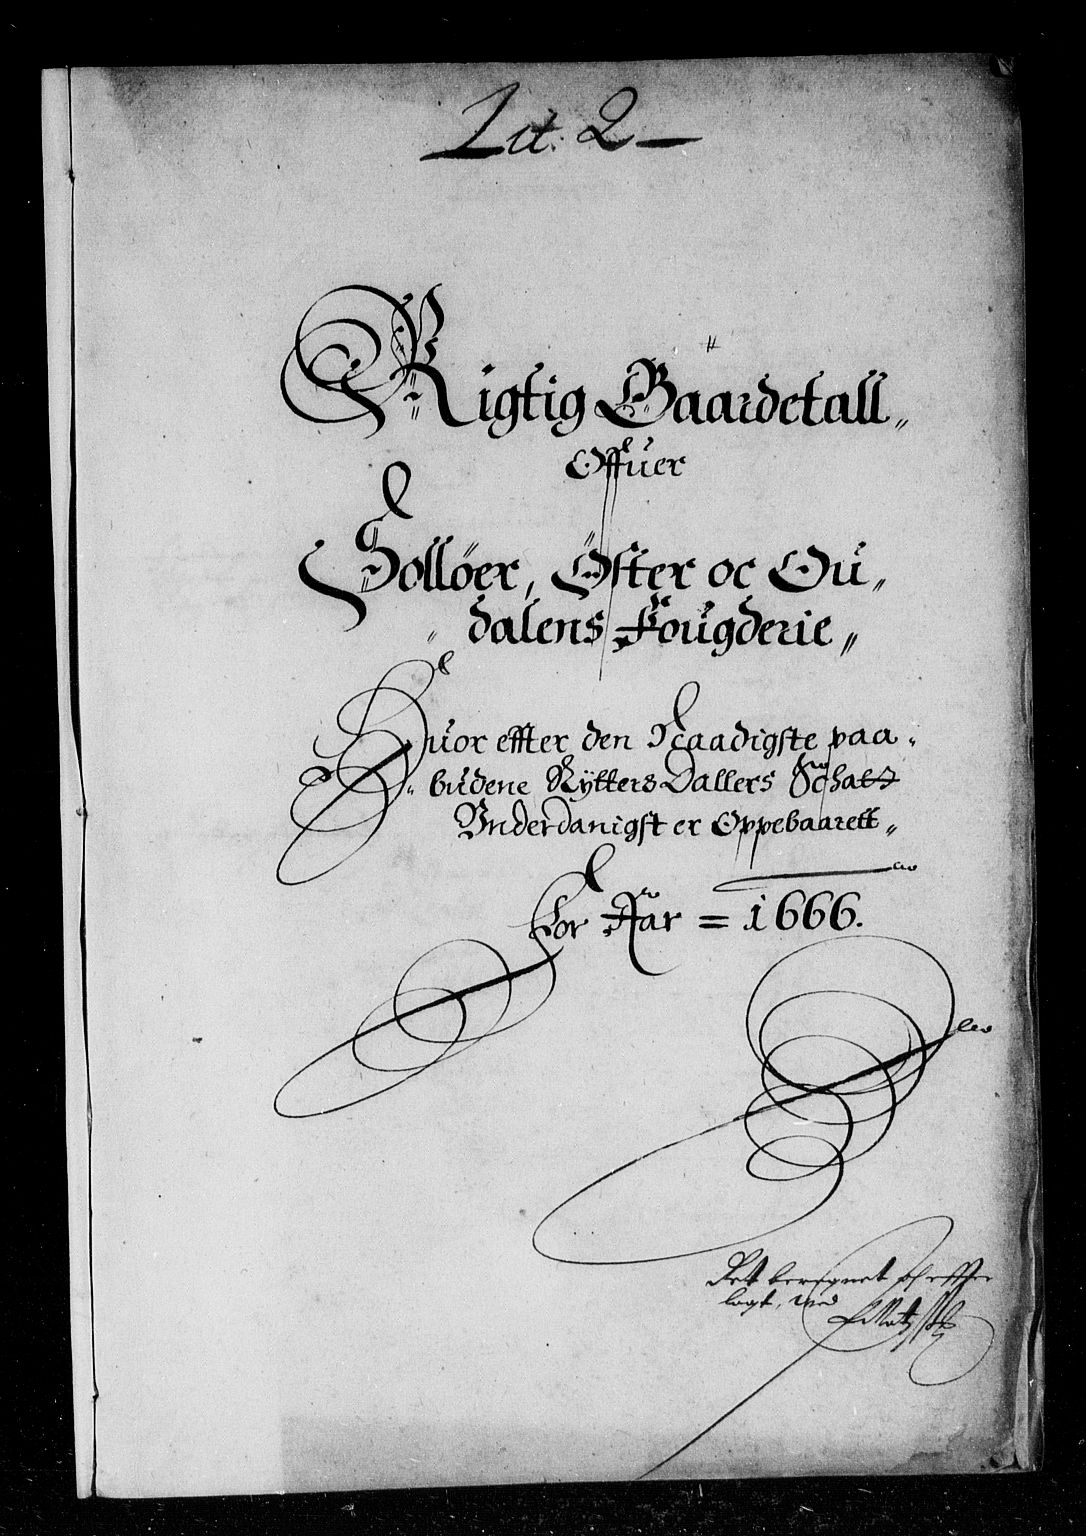 Lit. 2
Rigtig Gaardetall
Offuer
Solløer, Øster oc Ou
dalens Fougderie
Huor effter den Naadigste paa
budene Rytters Dallers Schatt
Vnderdanigst er Oppebaarett
For Aar = 1666.
Det beregnet
lagt, ved